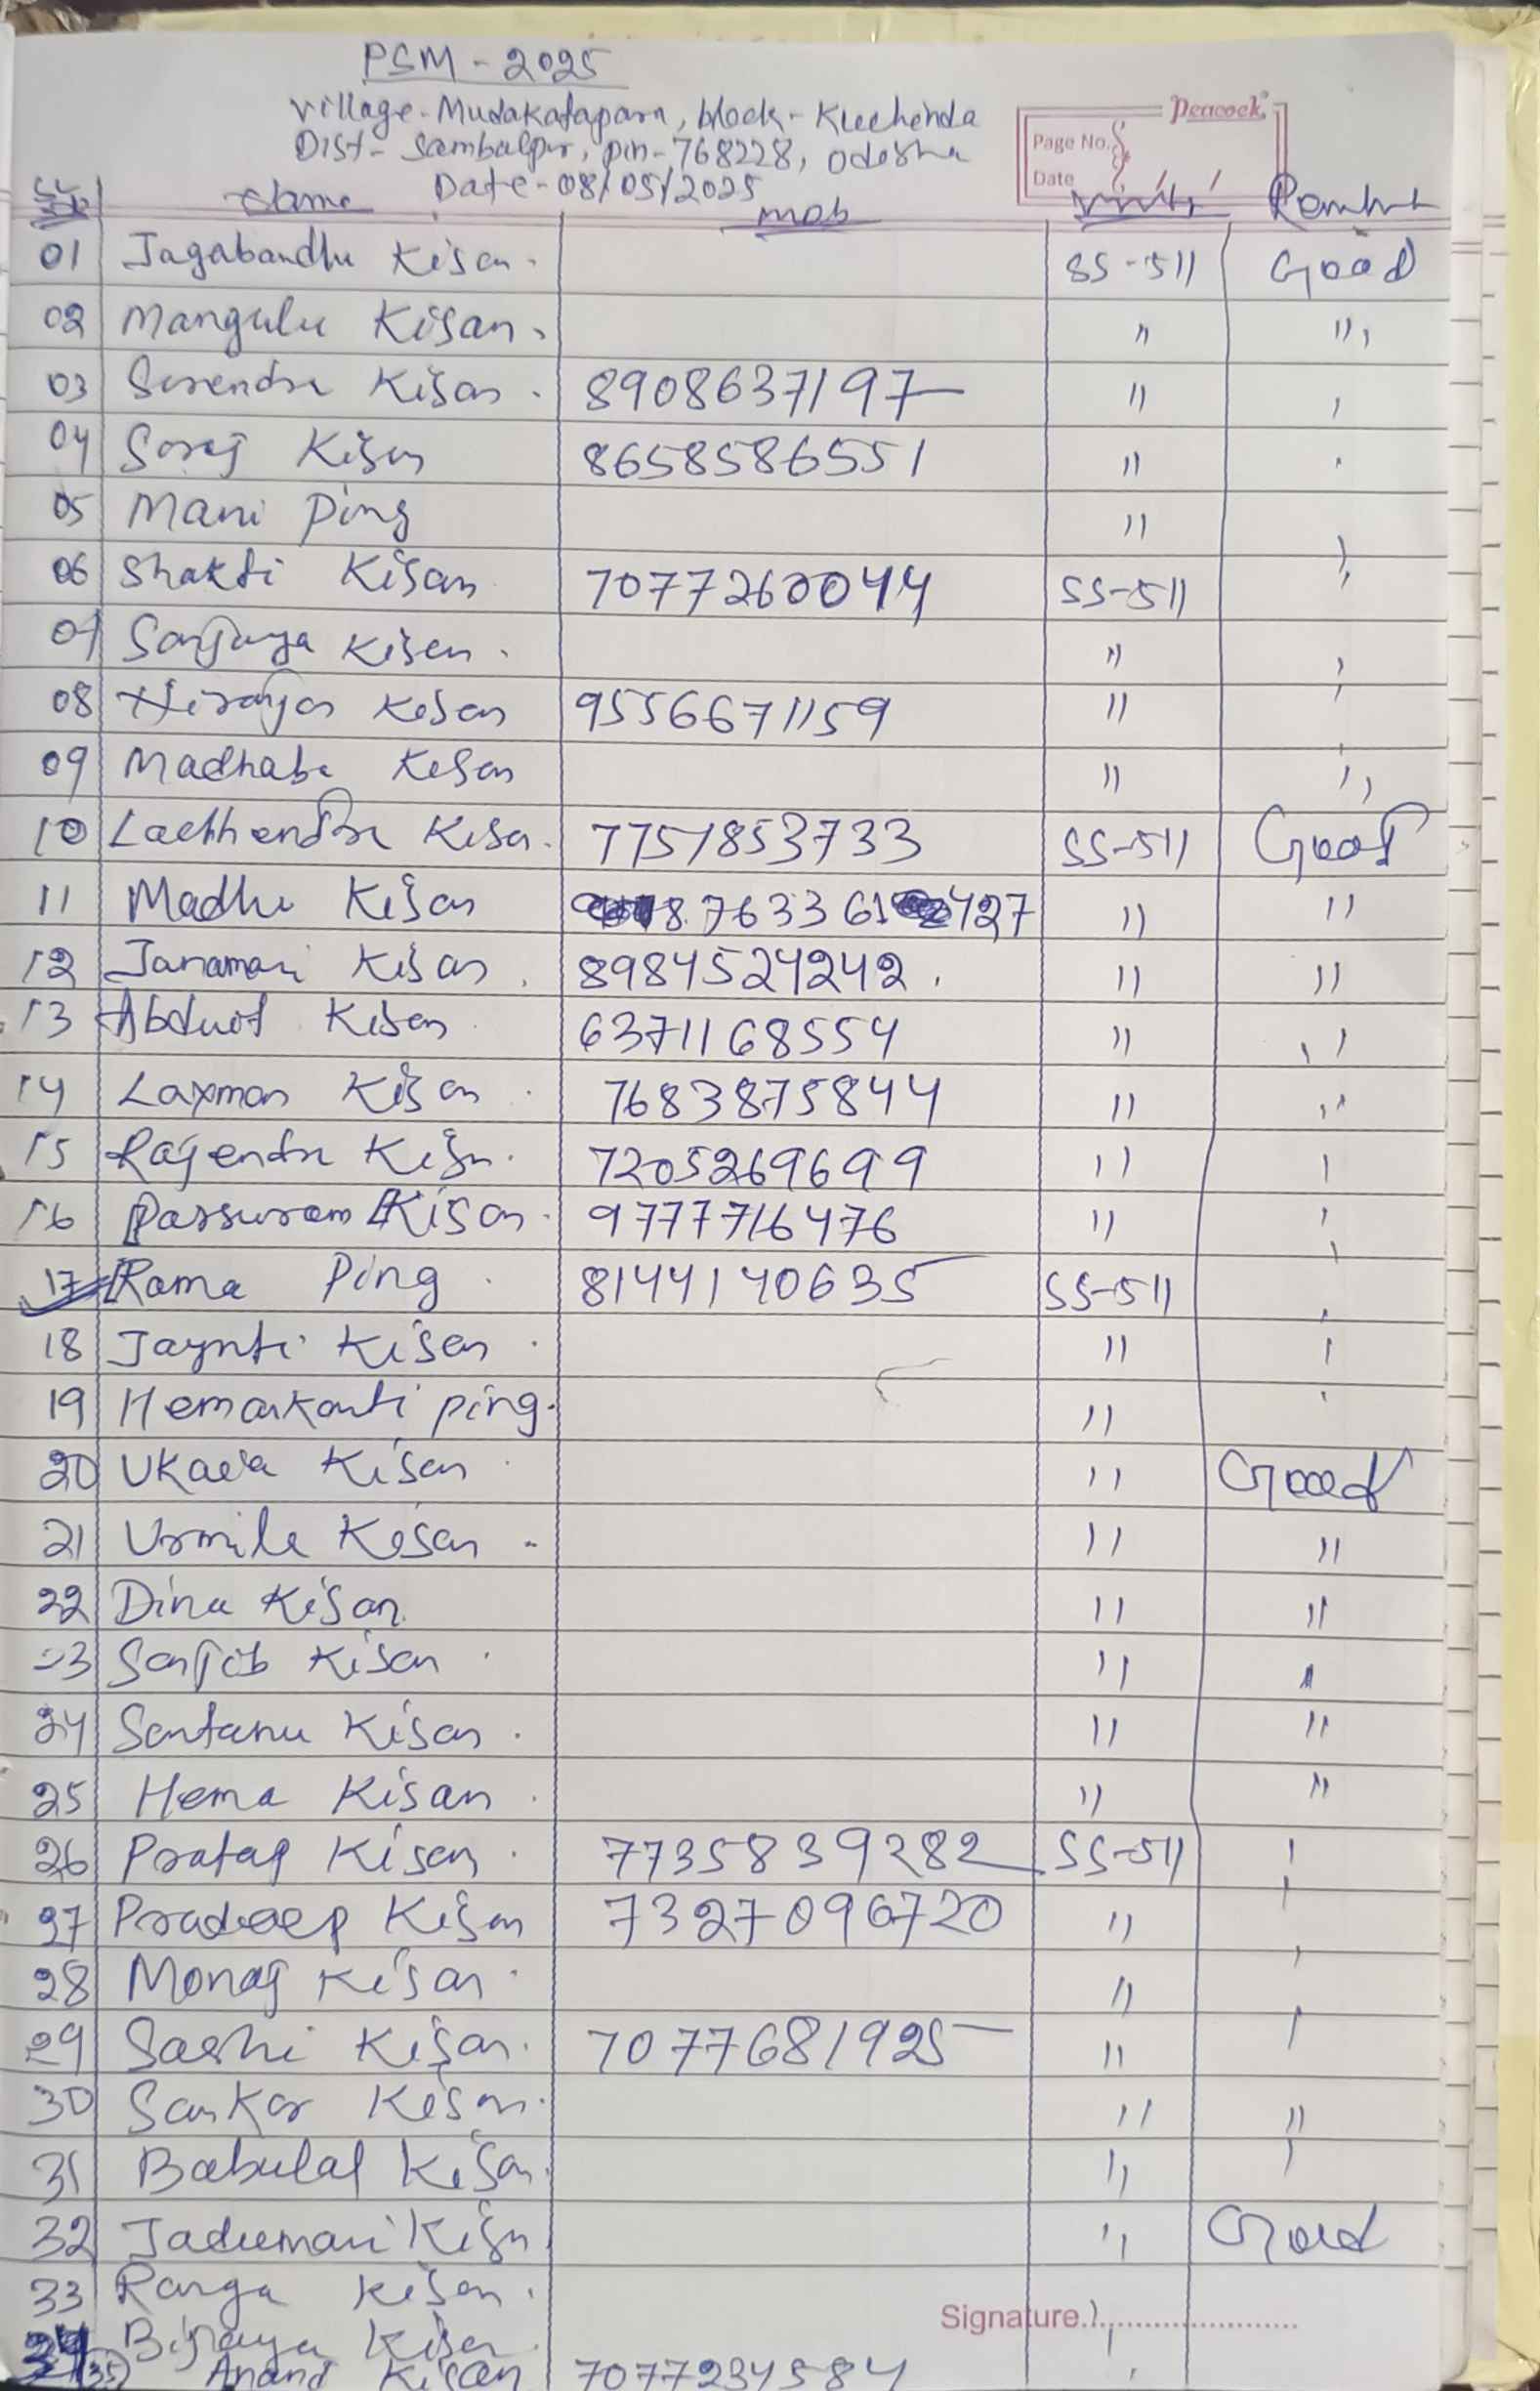 PSM - 2025
Village - Mudakatapara, block - Kuchinda
Dist - Sambalpur, pin - 768228, Odisha
Peacock
Page No.
Date
Date - 08/05/2025
SL Name mob Remark
01 Jagabandhu Kisan. SS-511 Good
02 Mangulu Kisan. " "
03 Surendra Kisan. 8908637197 "
04 Soraj Kisan 8658586551 "
05 Mani Ping "
06 Shakti Kisan 7077260044 SS-511
07 Sanjaya Kisan. "
08 Niranjan Kisan 9556671159 "
09 Madhaba Kisan " "
10 Lachhendra Kisan. 7751853733 SS-511 Good
11 Madhu Kisan 8763361427 " "
12 Janamani Kisan. 8984524242. " "
13 Kisan 6371168554 " "
14 Laxman Kisan. 7683875844 " "
15 Rajendra Kisan. 7205269699 "
16 Parsuram Kisan. 9777716476 "
17 Rama Ping. 8144140635 SS-511
18 Jaynti Kisan. "
19 Hemakanti ping. "
20 Kisan. " Good
21 Urmila Kisan " "
22 Dina Kisan. " "
23 Sanjib Kisan. " "
24 Santanu Kisan. " "
25 Hema Kisan. " "
26 Pratap Kisan. 7735839282 SS-511
27 Pradeep Kisan 7327096720 "
28 Monoj Kisan. "
29 Sashi Kisan. 7077681925 "
30 Sankar Kisan. " "
31 Babulal Kisan. "
32 Jadumani Kisan " Good
33 Ranga Kisan.
Signature
34 Bijaya Kisan.
35 Anand Kisan 7077234584